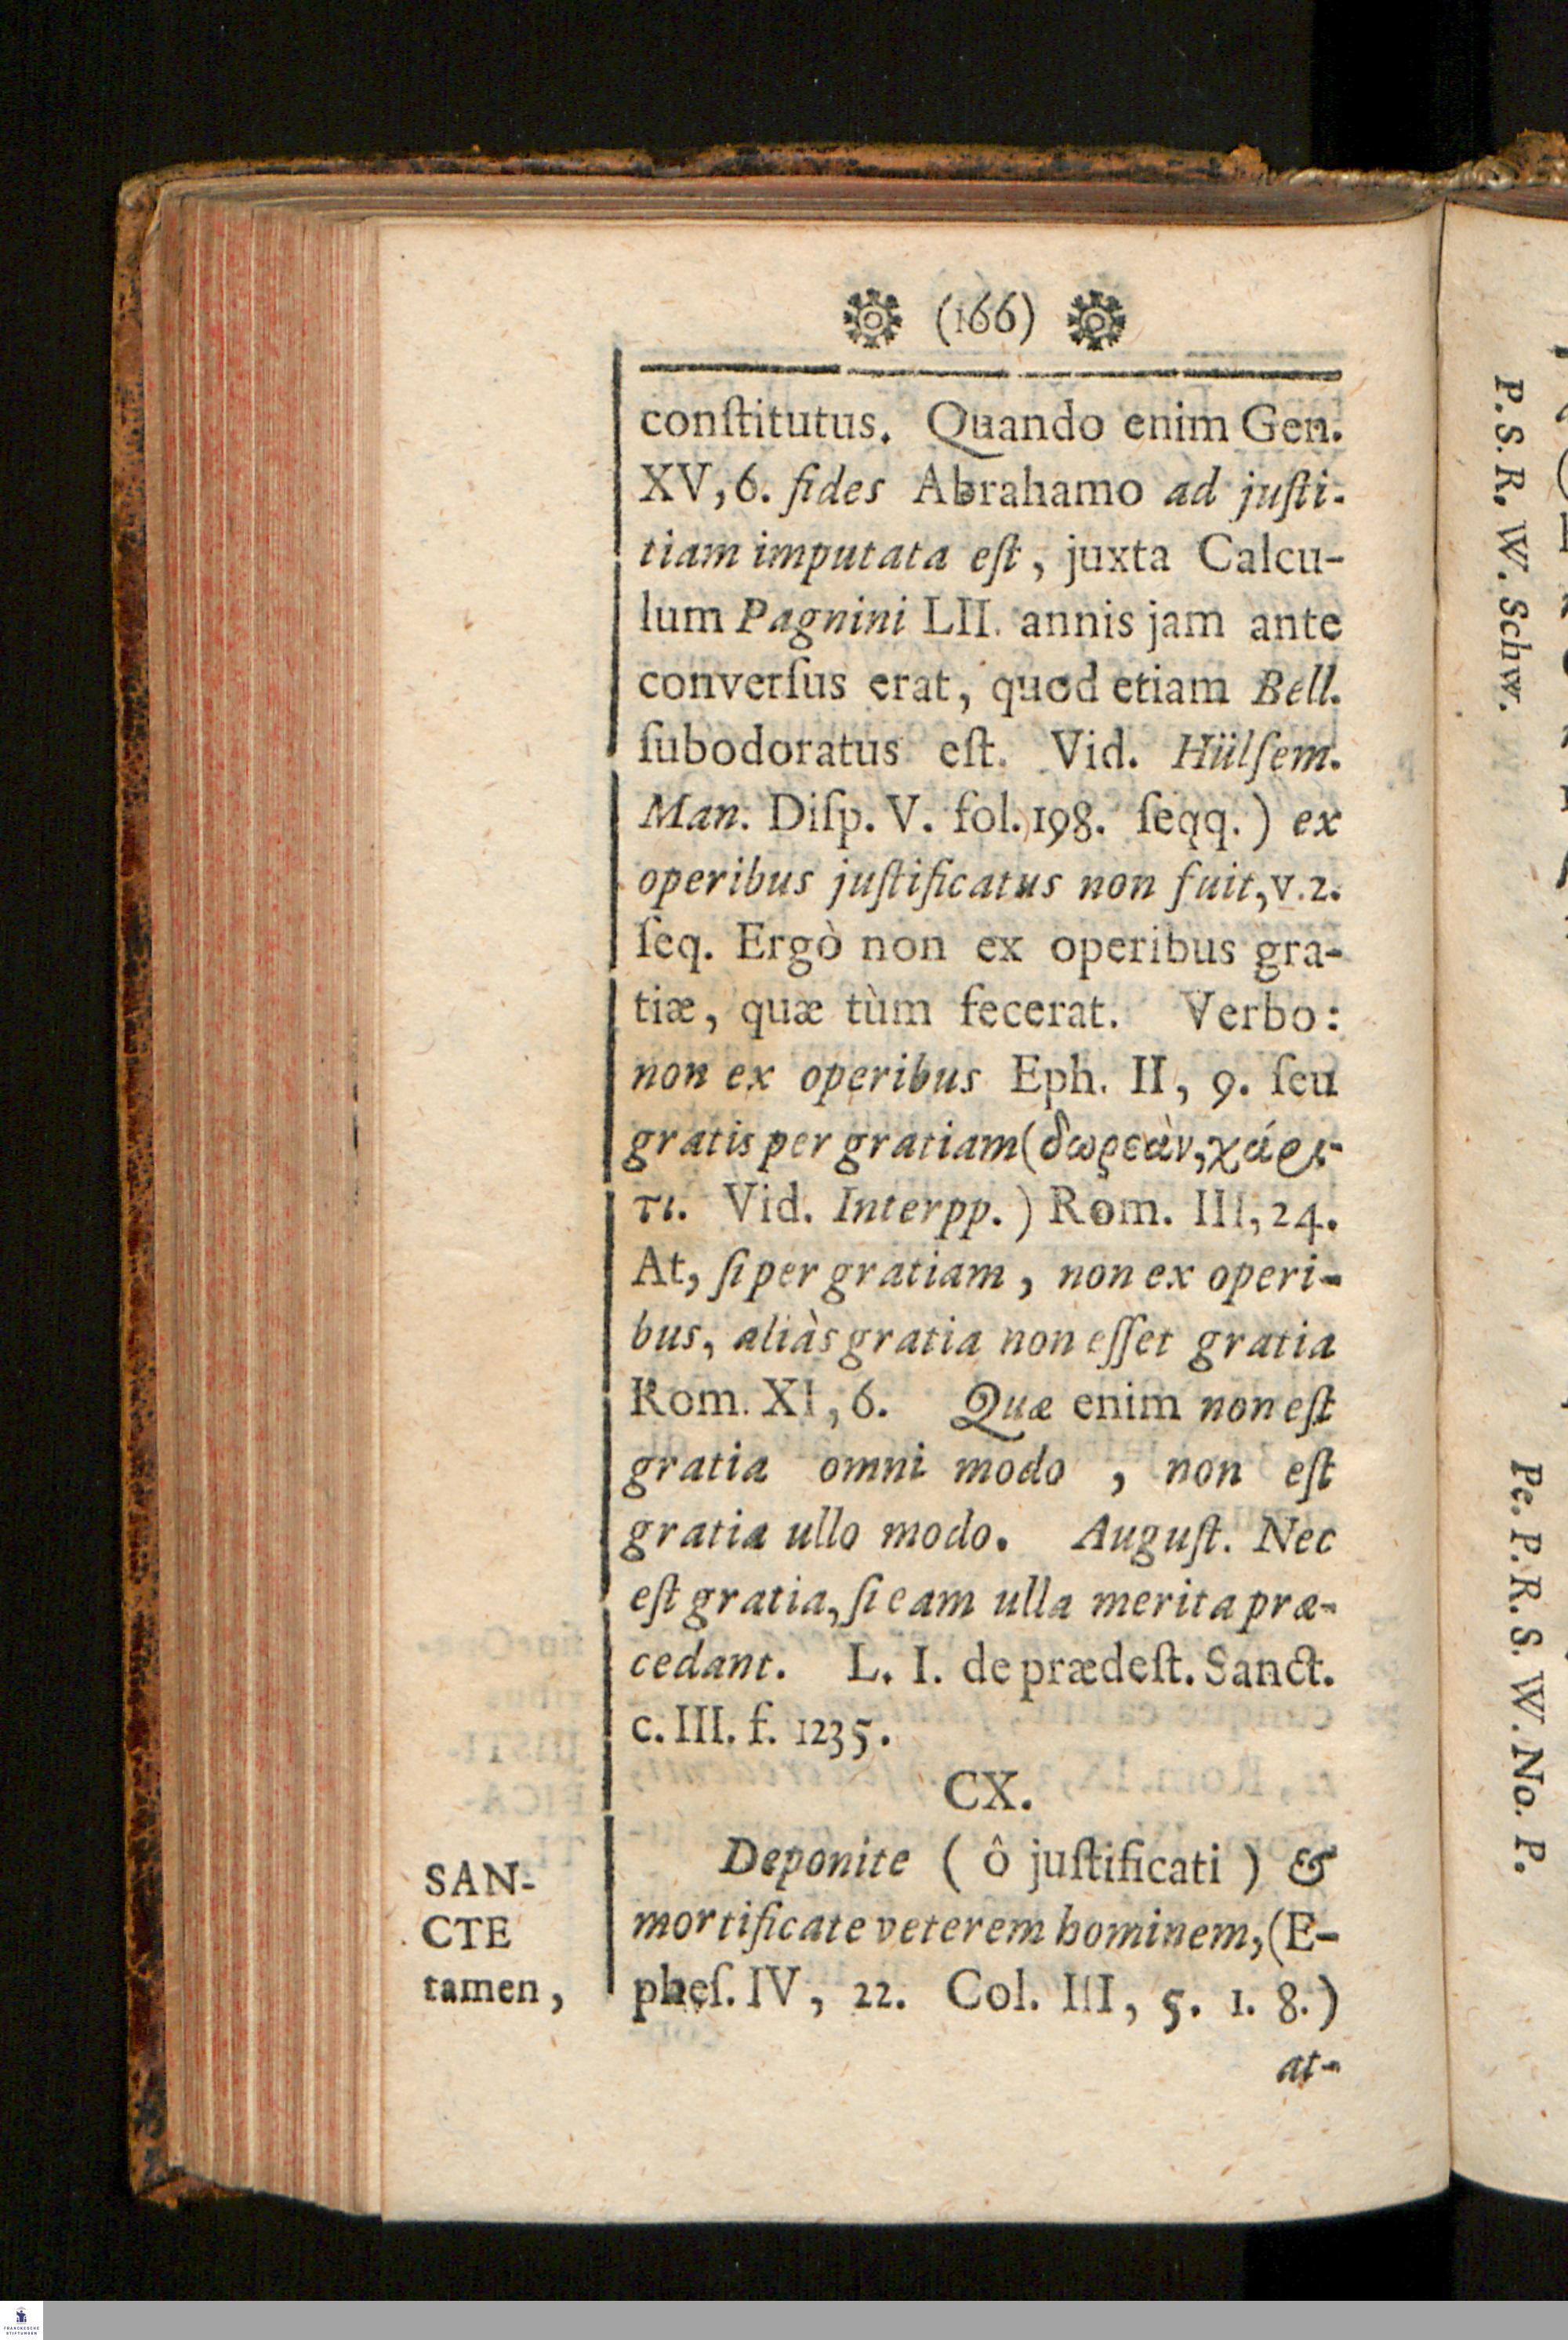 (166)
conſtitutus. Quando enim Gen.
XV, 6. fides Abrahamo ad juſti-
tiam imputata eſt, juxta Calcu-
lum Pagnini LII. annis jam ante
converſus erat, quod etiam Bell.
ſubodoratus eſt. Vid. Hülſem.
Man. Diſp. V. fol. 198. ſeqq.) ex
operibus juſtificatus non fuit, v. 2.
ſeq. Ergò non ex operibus gra-
tiæ, quæ tùm fecerat. Verbo:
non ex operibus Eph. II, 9. ſeu
gratis per gratiam (δωρεὰν, χάρι-
τι. Vid. Interpp.) Rom. III, 24.
At, ſi per gratiam, non ex operi-
bus, aliàs gratia non eſſet gratia
Rom. XI, 6. Quæ enim non eſt
gratia omni modo, non eſt
gratia ullo modo. Auguſt. Nec
eſt gratia, ſi eam ulla merita præ-
cedant. L. I. de prædeſt. Sanct.
c. III. f. 1235.
CX.
Deponite (ô juſtificati) &
mortificate veterem hominem, (E-
pheſ. IV, 22. Col. III, 5. 1. 8.)
at-
SAN-
CTE
tamen,
P. S. R. W. Schw.
Pe. P. R. S. W. No. P.
FRANCKESCHE
STIFTUNGEN